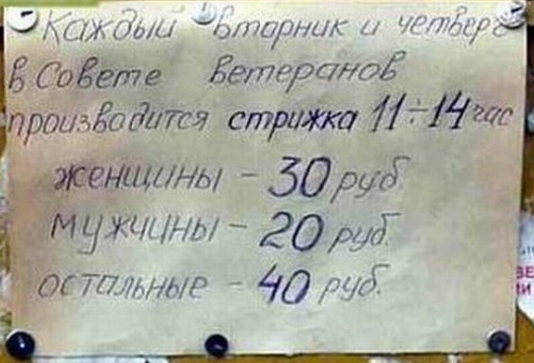 Каждый вторник и четверг
в Совете ветеранов
производится стрижка 11÷14 час
женщины - 30 руб.
мужчины - 20 руб.
остальные - 40 руб.